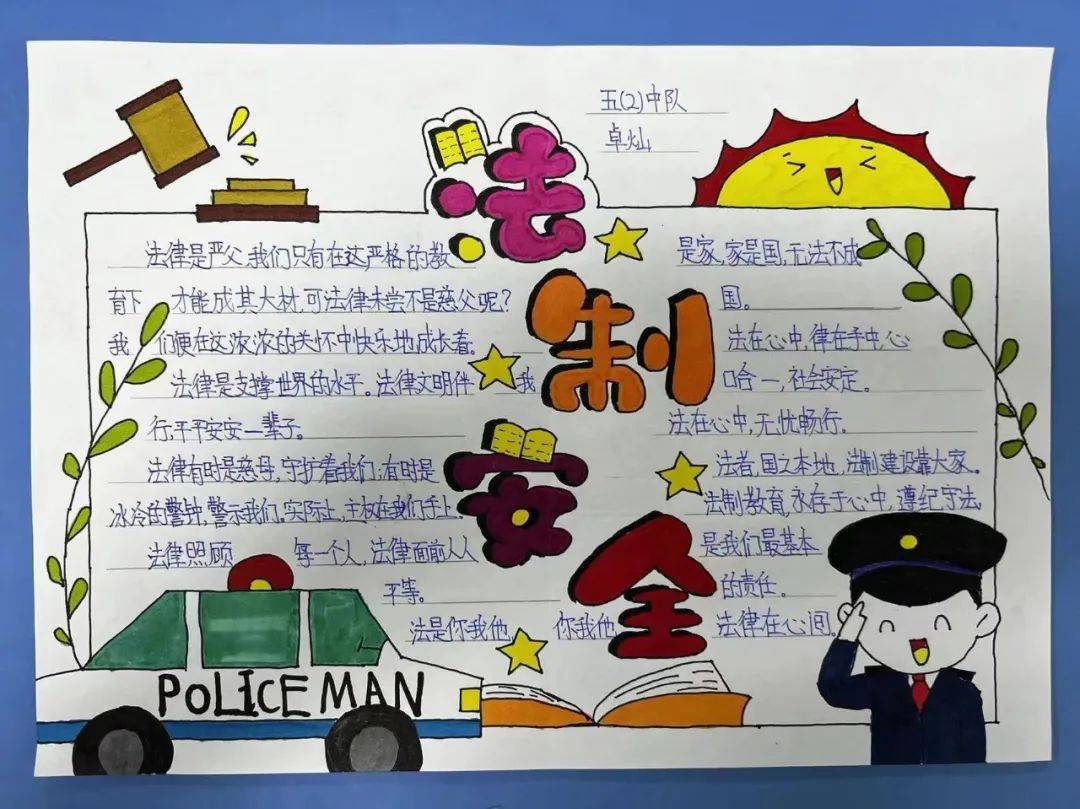 五(2)中队
卓灿
法制安全
法律是严父,我们只有在这严格的教
育下 才能成其大材,可法律未尝不是慈父呢?
我 们便在这浓浓的关怀中快乐地成长着。
法律是支撑世界的水平。法律文明伴 我
行,平平安安一辈子。
法律有时是慈母,守护着我们,有时是
冰冷的警钟,警示我们。实际上,主权在我们手上。
法律照顾 每一个人,法律面前人人
平等。
法是你我他, 你我他
是家,家是国,无法不成
国。
法在心中,律在手中,心
口合一,社会安定。
法在心中,无忧畅行。
法者,国之本地,法制建设靠大家。
法制教育,永存于心中,遵纪守法,
是我们最基本
的责任。
法律在心间。
POLICEMAN